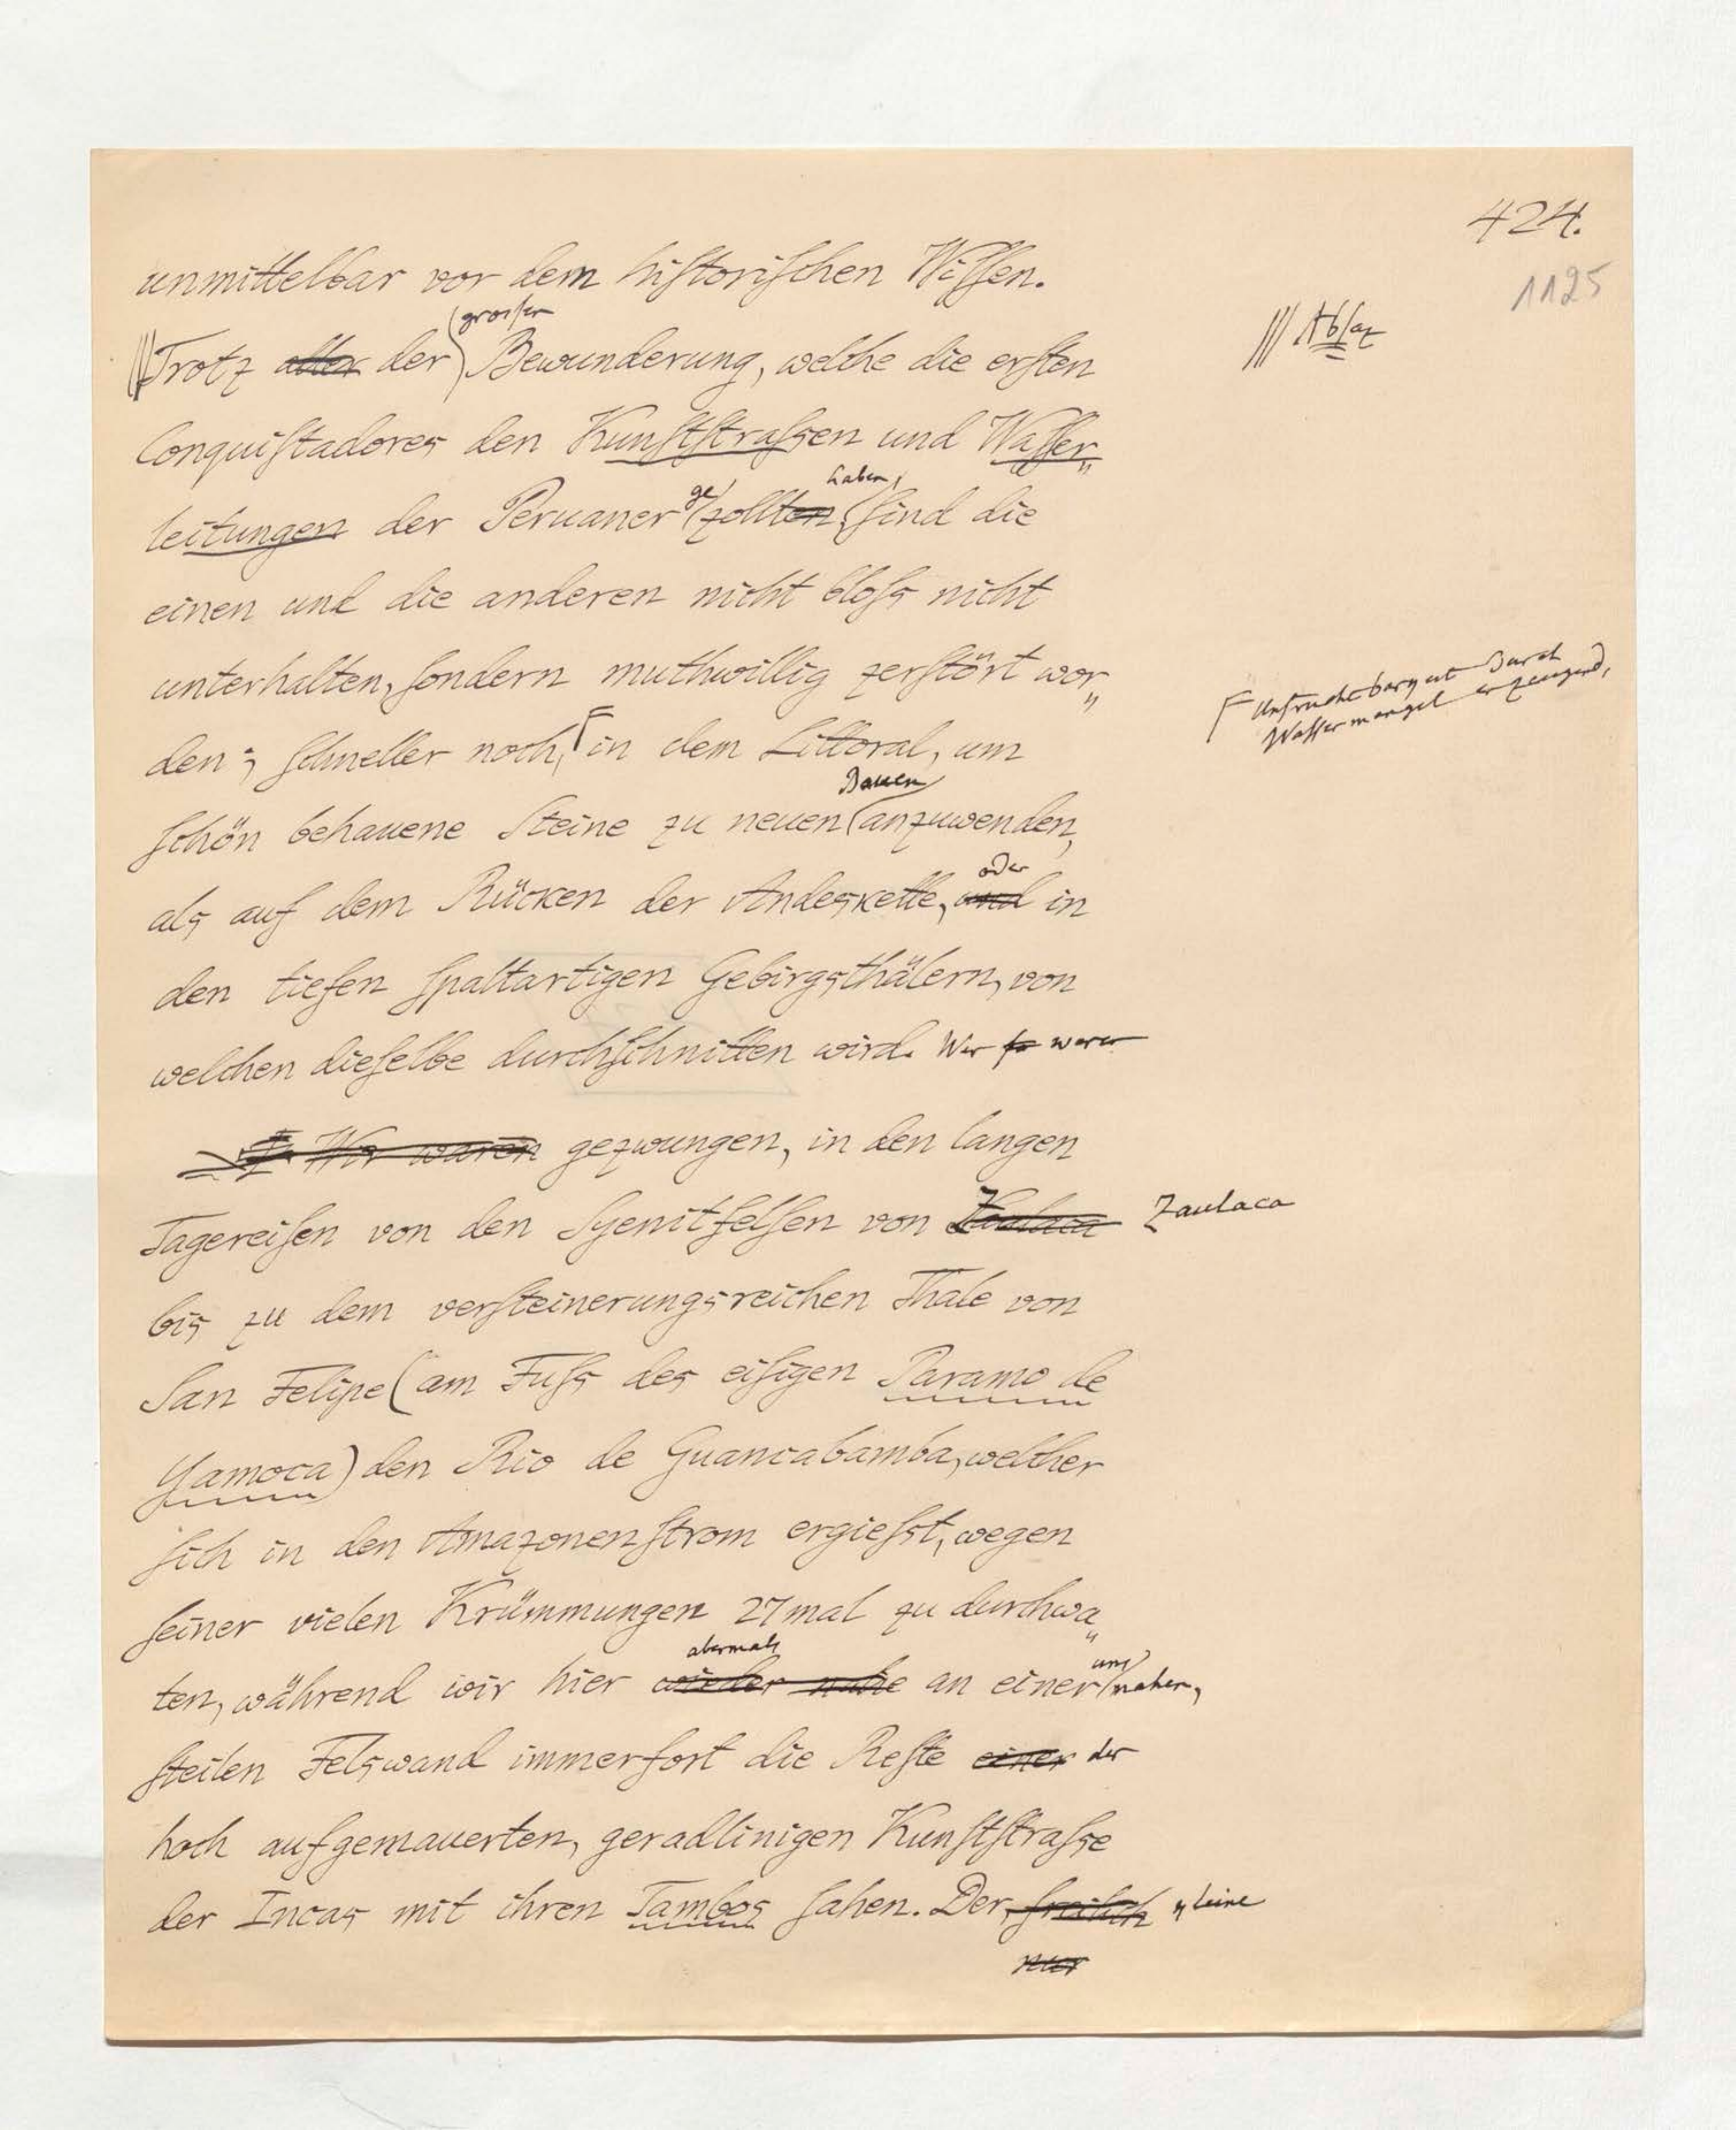 424.
1125
unmittelbar vor dem hiſtoriſchen Wiſſen.
großen
Trotz aller der Bewunderung, welche die erſten
Abſaz
Conquiſtadores den Kunſtſtraſsen und Waſſer„
ge haben,
leitungen der Peruaner zollten, ſind die
einen und die anderen nicht bloſs nicht
unterhalten, ſondern muthwillig zerſtört wor„
Unfruchtbarkeit durch
Waſſermangel erzeugend,
den; ſchneller noch, in dem Littoral, um
Bauen
ſchön behauene Steine zu neuen anzuwenden,
oder
als auf dem Rücken der Andeskette, und in
den tiefen ſpaltartigen Gebirgsthälern, von
welchen dieſelbe durchſchnitten wird. Wir waren
Wir waren gezwungen, in den langen
Tagereiſen von den Syenitfelſen von Zaulaca
bis zu dem verſteinerungsreichen Thale von
San Felipe (am Fuſs des eiſigen Paramo de
Yamoca) den Rio de Guancabamba, welcher
ſich in den Amazonenſtrom ergieſst, wegen
ſeiner vielen Krümmungen 27mal zu durchwa„
abermals uns
ten, während wir hier wieder nahe an einer nahen,
ſteilen Felswand immerfort die Reſte einer der
hoch aufgemauerten, geradlinigen Kunſtſtraſse
der Incas mit ihren Tambos ſahen. Der, freilich kleine
nur